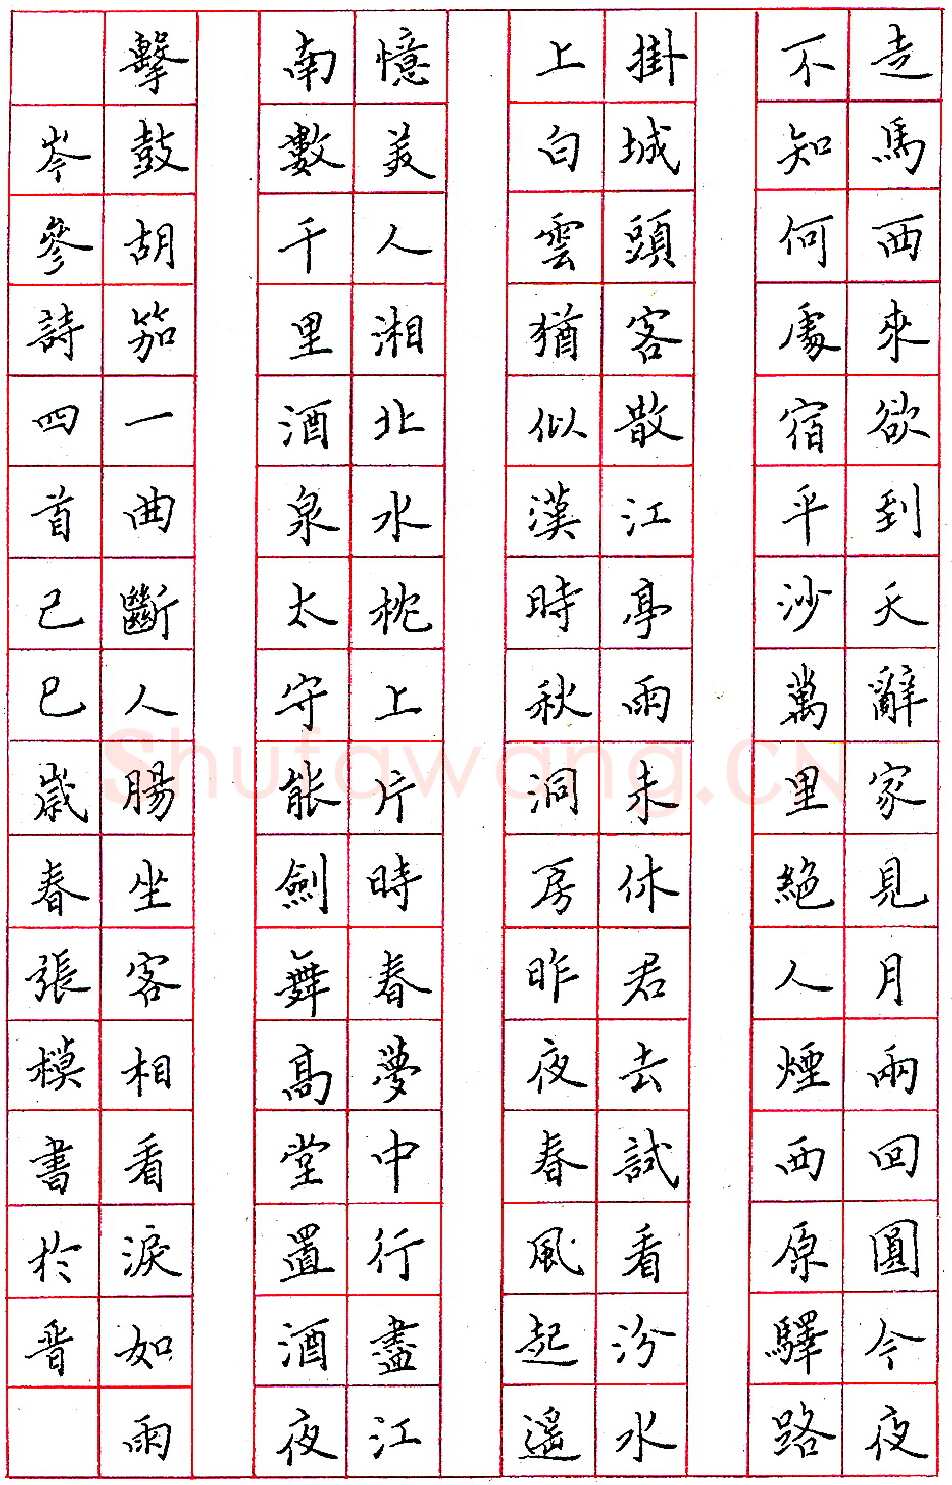 走馬西來欲到天辭家見月兩回圓今夜
不知何處宿平沙萬里絕人煙西原驛路
掛城頭客散江亭雨未休君去試看汾水
上白雲猶似漢時秋洞房昨夜春風起遙
憶美人湘北水枕上片時春夢中行盡江
南數千里酒泉太守能劍舞高堂置酒夜
擊鼓胡笳一曲斷人腸坐客相看淚如雨
岑參詩四首己巳歲春張模書於晋
Shufawang.CN